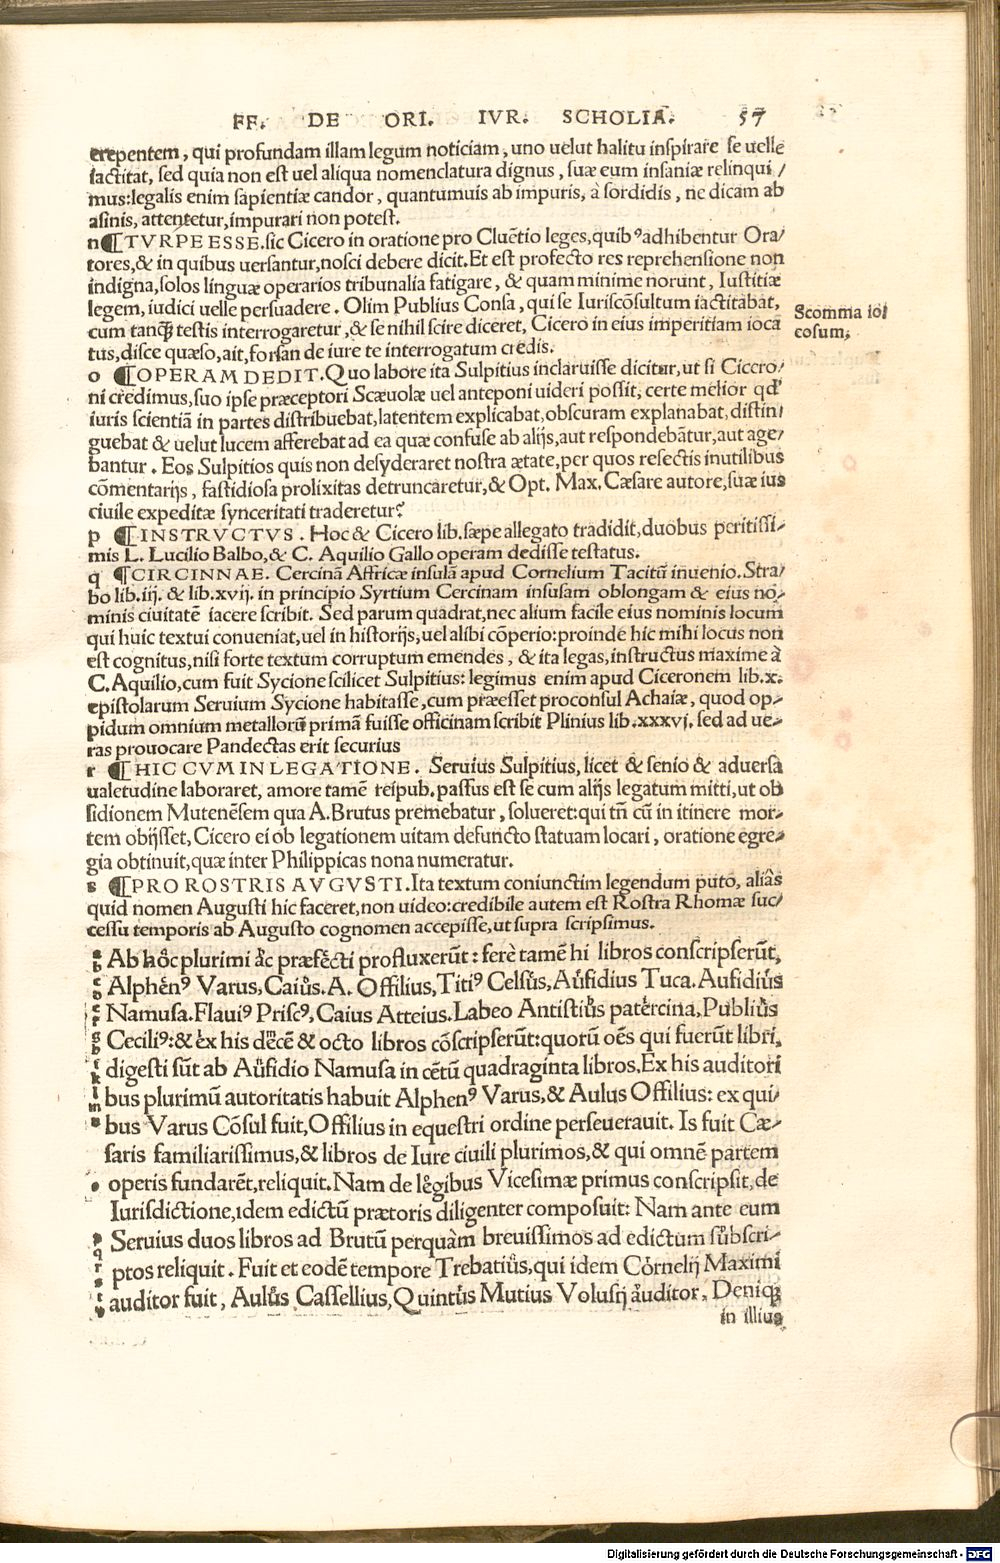 FF. DE ORI. IVR. SCHOLIA. 57
erepentem, qui profundam illam legum noticiam, uno uelut halitu inspirare se uelle
iactitat, sed quia non est uel aliqua nomenclatura dignus, suæ eum insaniæ relinqui/
mus:legalis enim sapientiæ candor, quantumuis ab impuris, à sordidis, ne dicam ab
asinis, attentetur, impurari non potest.
n ¶TVRPE ESSE. sic Cicero in oratione pro Cluẽtio leges, quibꝰ adhibentur Ora/
tores, & in quibus uersantur, nosci debere dicit. Et est profecto res reprehensione non
indigna, solos linguæ operarios tribunalia fatigare, & quam minime norunt, Iustitiæ
legem, iudici uelle persuadere. Olim Publius Consa, qui se Iuriscõsultum iactitabat,
cum tanq̃ testis interrogaretur, & se nihil scire diceret, Cicero in eius imperitiam ioca
tus, disce quæso, ait, forsan de iure te interrogatum credis.
Scomma io/
cosum.
o ¶OPERAM DEDIT. Quo labore ita Sulpitius inclaruisse dicitur, ut si Cicero/
ni credimus, suo ipse præceptori Scæuolæ uel anteponi uideri possit, certe melior qd̕
iuris scientiã in partes distribuebat, latentem explicabat, obscuram explanabat, distin/
guebat & uelut lucem afferebat ad ea quæ confuse ab alijs, aut respondebãtur, aut age/
bantur. Eos Sulpitios quis non desyderaret nostra ætate, per quos resectis inutilibus
cõmentarijs, fastidiosa prolixitas detruncaretur, & Opt. Max. Cæsare autore, suæ ius
ciuile expeditæ synceritati traderetur?
p ¶INSTRVCTVS. Hoc & Cicero lib. sæpe allegato tradidit, duobus peritissi-
mis L. Lucilio Balbo, & C. Aquilio Gallo operam dedisse testatus.
q ¶CIRCINNAE. Cercinã Affricæ insulã apud Cornelium Tacitũ inuenio. Stra/
bo lib. iij. & lib. xvij. in principio Syrtium Cercinam insulam oblongam & eius no-
minis ciuitatẽ iacere scribit. Sed parum quadrat, nec alium facile eius nominis locum
qui huic textui conueniat, uel in historijs, uel alibi cõperio: proinde hic mihi locus non
est cognitus, nisi forte textum corruptum emendes, & ita legas, instructus maxime à
C. Aquilio, cum fuit Sycione scilicet Sulpitius: legimus enim apud Ciceronem lib. x.
epistolarum Seruium Sycione habitasse, cum præesset proconsul Achaiæ, quod op-
pidum omnium metallorũ primã fuisse officinam scribit Plinius lib. xxxvj. sed ad ue-
ras prouocare Pandectas erit securius
r ¶HIC CVM IN LEGATIONE. Seruius Sulpitius, licet & senio & aduersa
ualetudine laboraret, amore tamẽ reipub. passus est se cum alijs legatum mitti, ut ob
sidionem Mutenẽsem qua A. Brutus premebatur, solueret: qui tñ cũ in itinere mor-
tem obijsset, Cicero ei ob legationem uitam defuncto statuam locari, oratione egre-
gia obtinuit, quæ inter Philippicas nona numeratur.
s ¶PRO ROSTRIS AVGVSTI. Ita textum coniunctim legendum puto, aliâs
quid nomen Augusti hic faceret, non uideo: credibile autem est Rostra Rhomæ suc/
cessu temporis ab Augusto cognomen accepisse, ut supra scripsimus.
Ab hoc plurimi profluxerũt: ferè tamẽ hi libros conscripserũt,
Alphenꝰ Varus, Caius. A. Offilius, Titiꝰ Celsus, Aufidius Tuca. Aufidius
Namusa. Flauiꝰ Priscꝰ, Caius Atteius. Labeo Antistius patercina, Publius
Ceciliꝰ: & ex his decẽ & octo libros cõscripserũt: quorũ oẽs qui fuerũt libri,
digesti sũt ab Aufidio Namusa in cẽtũ quadraginta libros. Ex his auditori
bus plurimũ autoritatis habuit Alphenꝰ Varus, & Aulus Offilius: ex qui/
bus Varus Cõsul fuit, Offilius in equestri ordine perseuerauit. Is fuit Cæ-
saris familiarissimus, & libros de Iure ciuili plurimos, & qui omnẽ partem
operis fundarẽt, reliquit. Nam de legibus Vicesimæ primus conscripsit, de
Iurisdictione, idem edictũ prætoris diligenter composuit: Nam ante eum
Seruius duos libros ad Brutũ perquàm breuissimos ad edictum subscri-
ptos reliquit. Fuit et eodẽ tempore Trebatius, qui idem Cornelij Maximi
auditor fuit, Aulus Cassellius, Quintus Mutius Volusij auditor, Deniq;
in illius
Digitalisierung gefördert durch die Deutsche Forschungsgemeinschaft - DFG